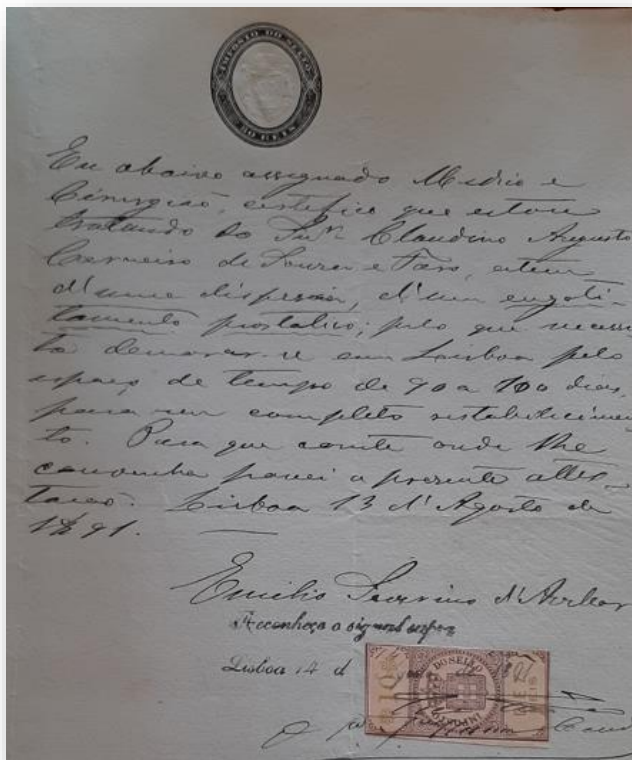 IMPOSTO DO SELLO
30 REIS
Eu abaixo assignado Medico e
Cirurgião, certifico que estou
tratando do Snr. Claudino Augusto
Carneiro de Souza e Faro, 
d'uma dispepsia, d'um engoti-
tamento prostatico; pelo que necessi
ta demorar-se em Lisboa pelo
espaço de tempo de 90 a 100 dias,
para seu completo restabelecimen
to. Para que conste onde lhe
convenha passei a presente attes-
tacao. Lisboa 13 d'Agosto de
1891.
Emilio Severino d'Avelar
Reconheço o signal supra
Lisboa 14 d
IMPOSTO DO SELLO
10